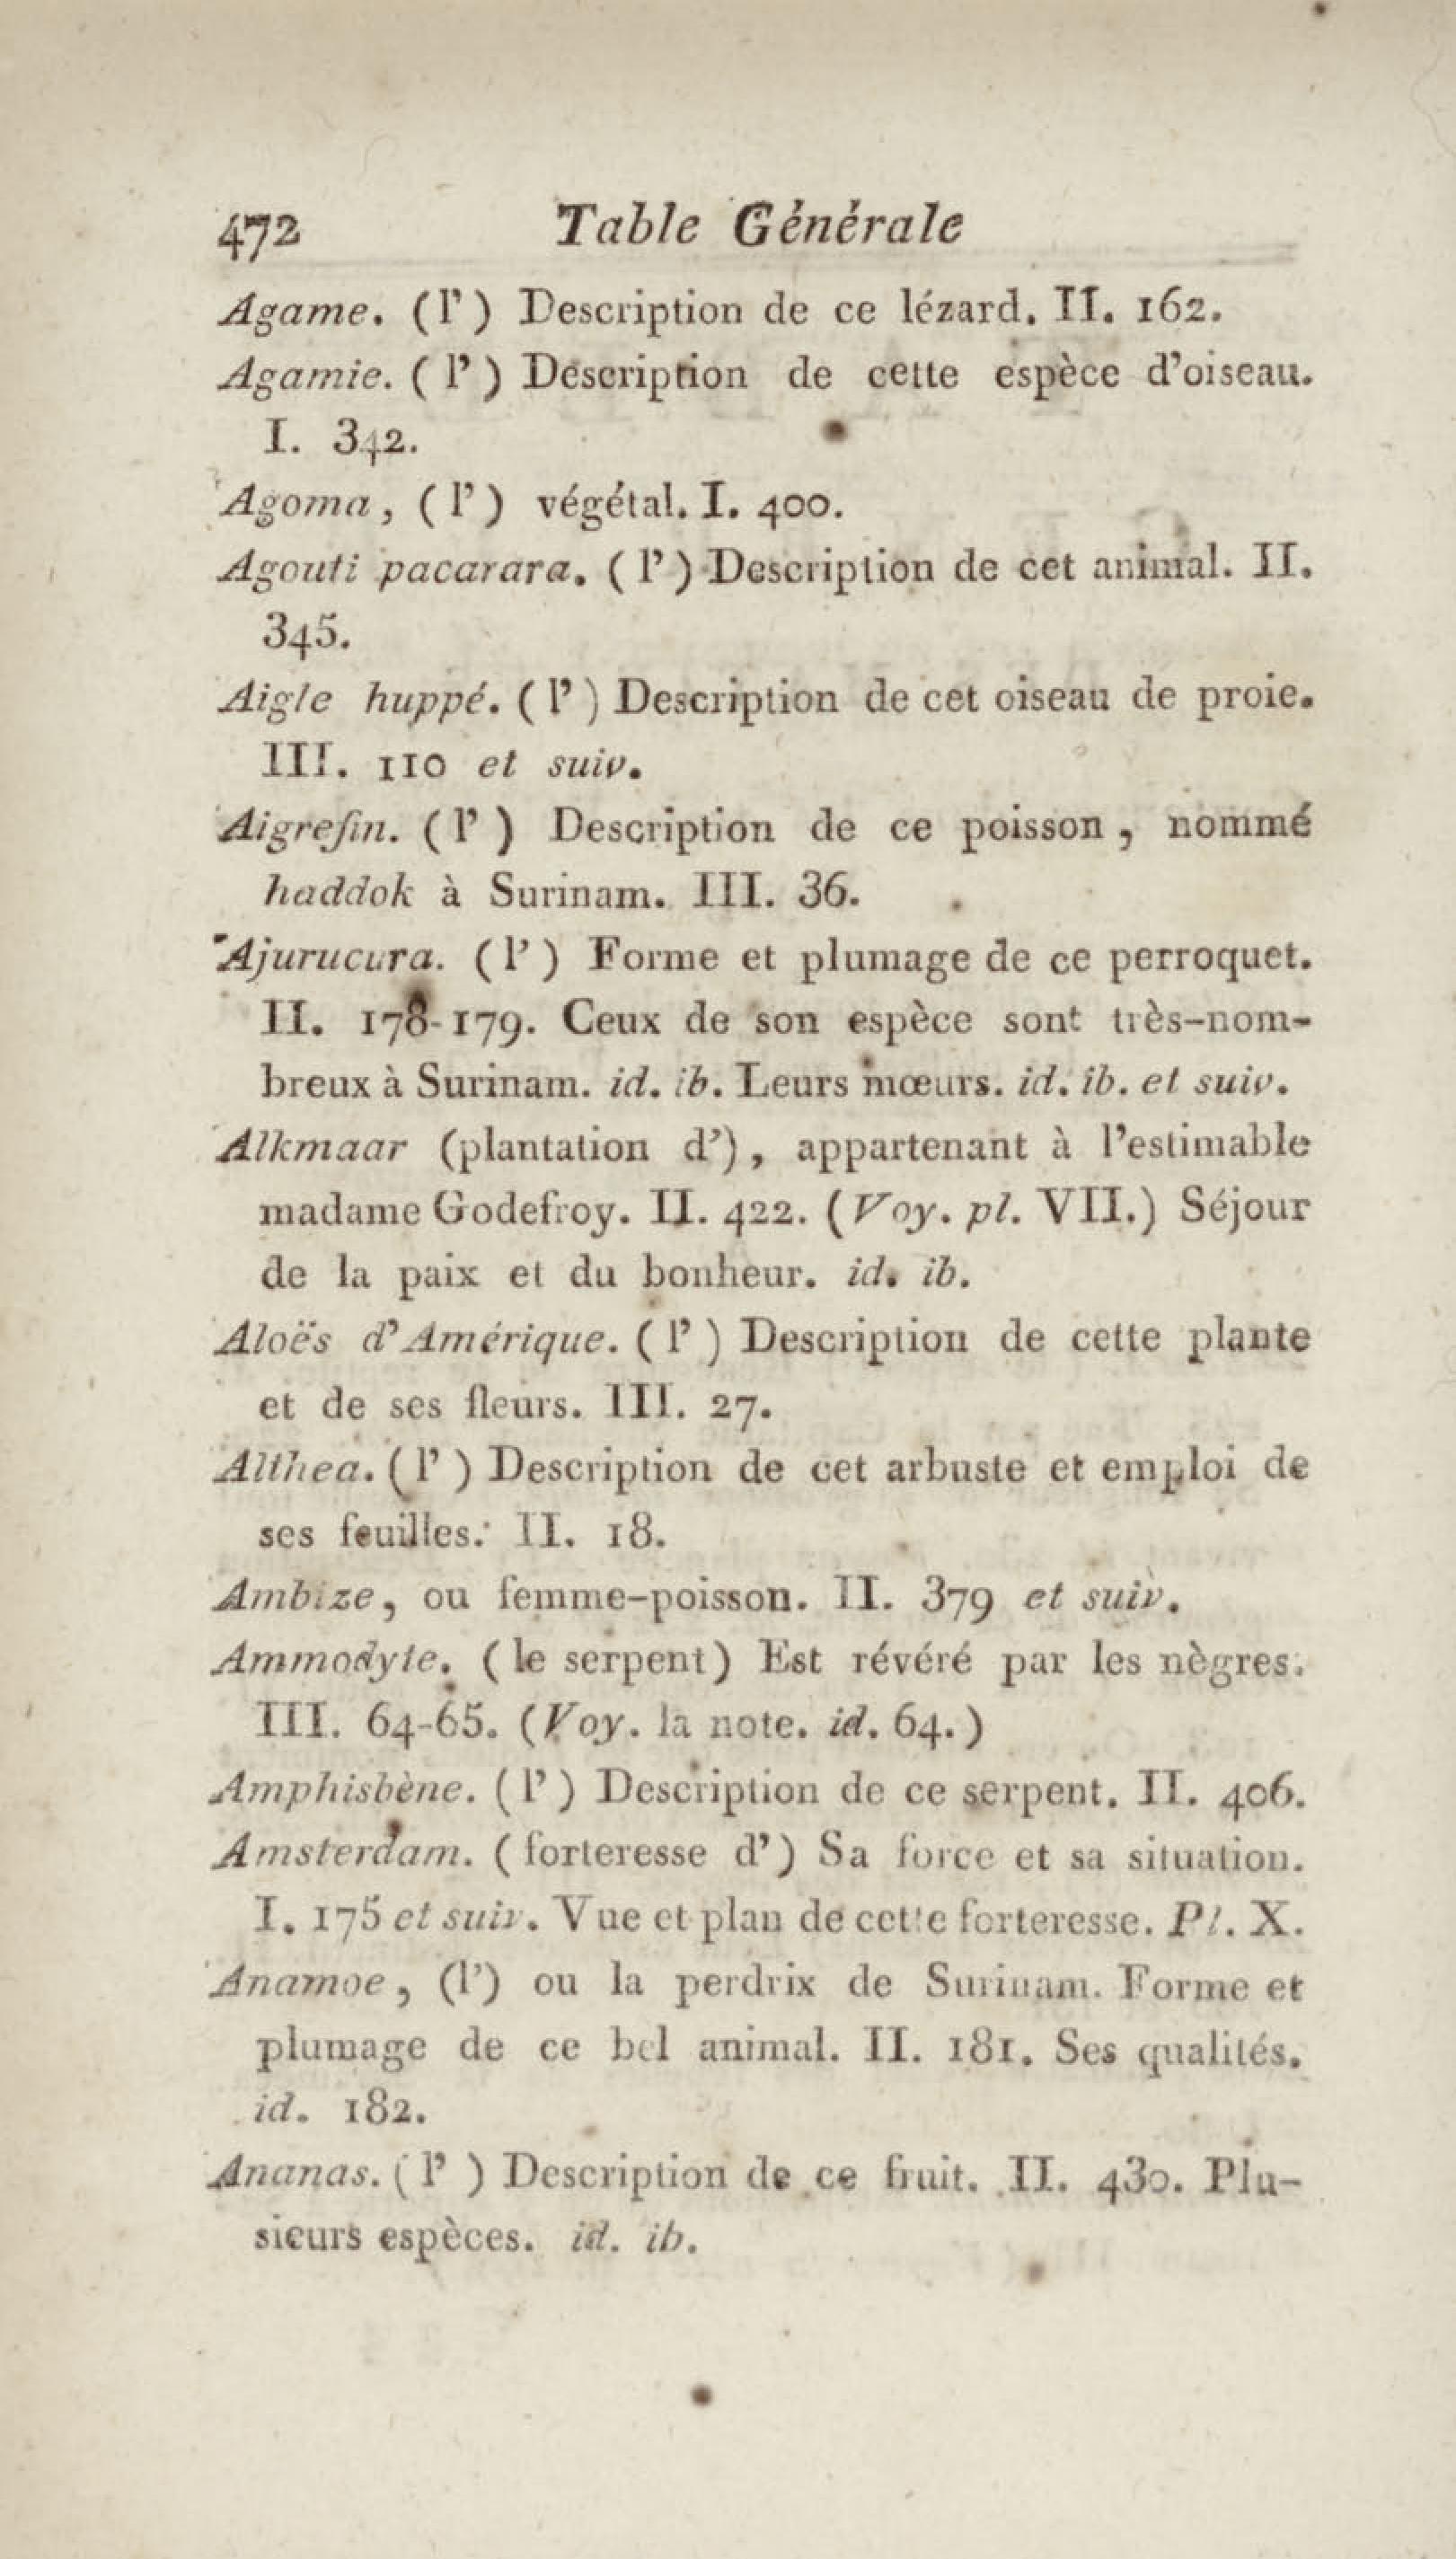 472 Table Générale
Agame. (l') Description de ce lézard. II. 162.
Agamie. (l') Description de cette espèce d'oiseau.
I. 342.
Agoma, (l') végétal. I. 400.
Agouti pacarara. (l') Description de cet animal. II.
345.
Aigle huppé. (l') Description de cet oiseau de proie.
III. 110 et suiv.
Aigrefin. (l') Description de ce poisson, nommé
haddok à Surinam. III. 36.
Ajurucura. (l') Forme et plumage de ce perroquet.
II. 178-179. Ceux de son espèce sont très-nom-
breux à Surinam. id. ib. Leurs mœurs. id. ib. et suiv.
Alkmaar (plantation d'), appartenant à l'estimable
madame Godefroy. II. 422. (Voy. pl. VII.) Séjour
de la paix et du bonheur. id. ib.
Aloës d'Amérique. (l') Description de cette plante
et de ses fleurs. III. 27.
Althea. (l') Description de cet arbuste et emploi de
ses feuilles. II. 18.
Ambize, ou femme-poisson. II. 379 et suiv.
Ammodyte. (le serpent) Est révéré par les nègres.
III. 64-65. (Voy. la note. id. 64.)
Amphisbène. (l') Description de ce serpent. II. 406.
Amsterdam. (forteresse d') Sa force et sa situation.
I. 175 et suiv. Vue et plan de cette forteresse. Pl. X.
Anamoe, (l') ou la perdrix de Surinam. Forme et
plumage de ce bel animal. II. 181. Ses qualités.
id. 182.
Ananas. (l') Description de ce fruit. II. 430. Plu-
sieurs espèces. id. ib.